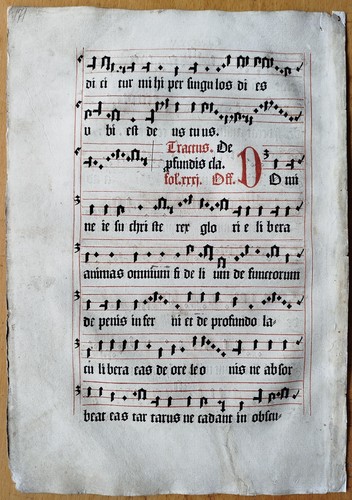 di ci tur mi hi per singu los di es
u bi est de us tu us.
Tractus. De
profundis cla.
fol.xxxj. Off. D O mi
ne ie su chri ste rex glo ri e li bera
animas omnium fi de li um de functorum
de penis in fer ni et de profundo la-
cu li bera eas de ore le o nis ne absor
beat eas tar tarus ne cadant in obscu-